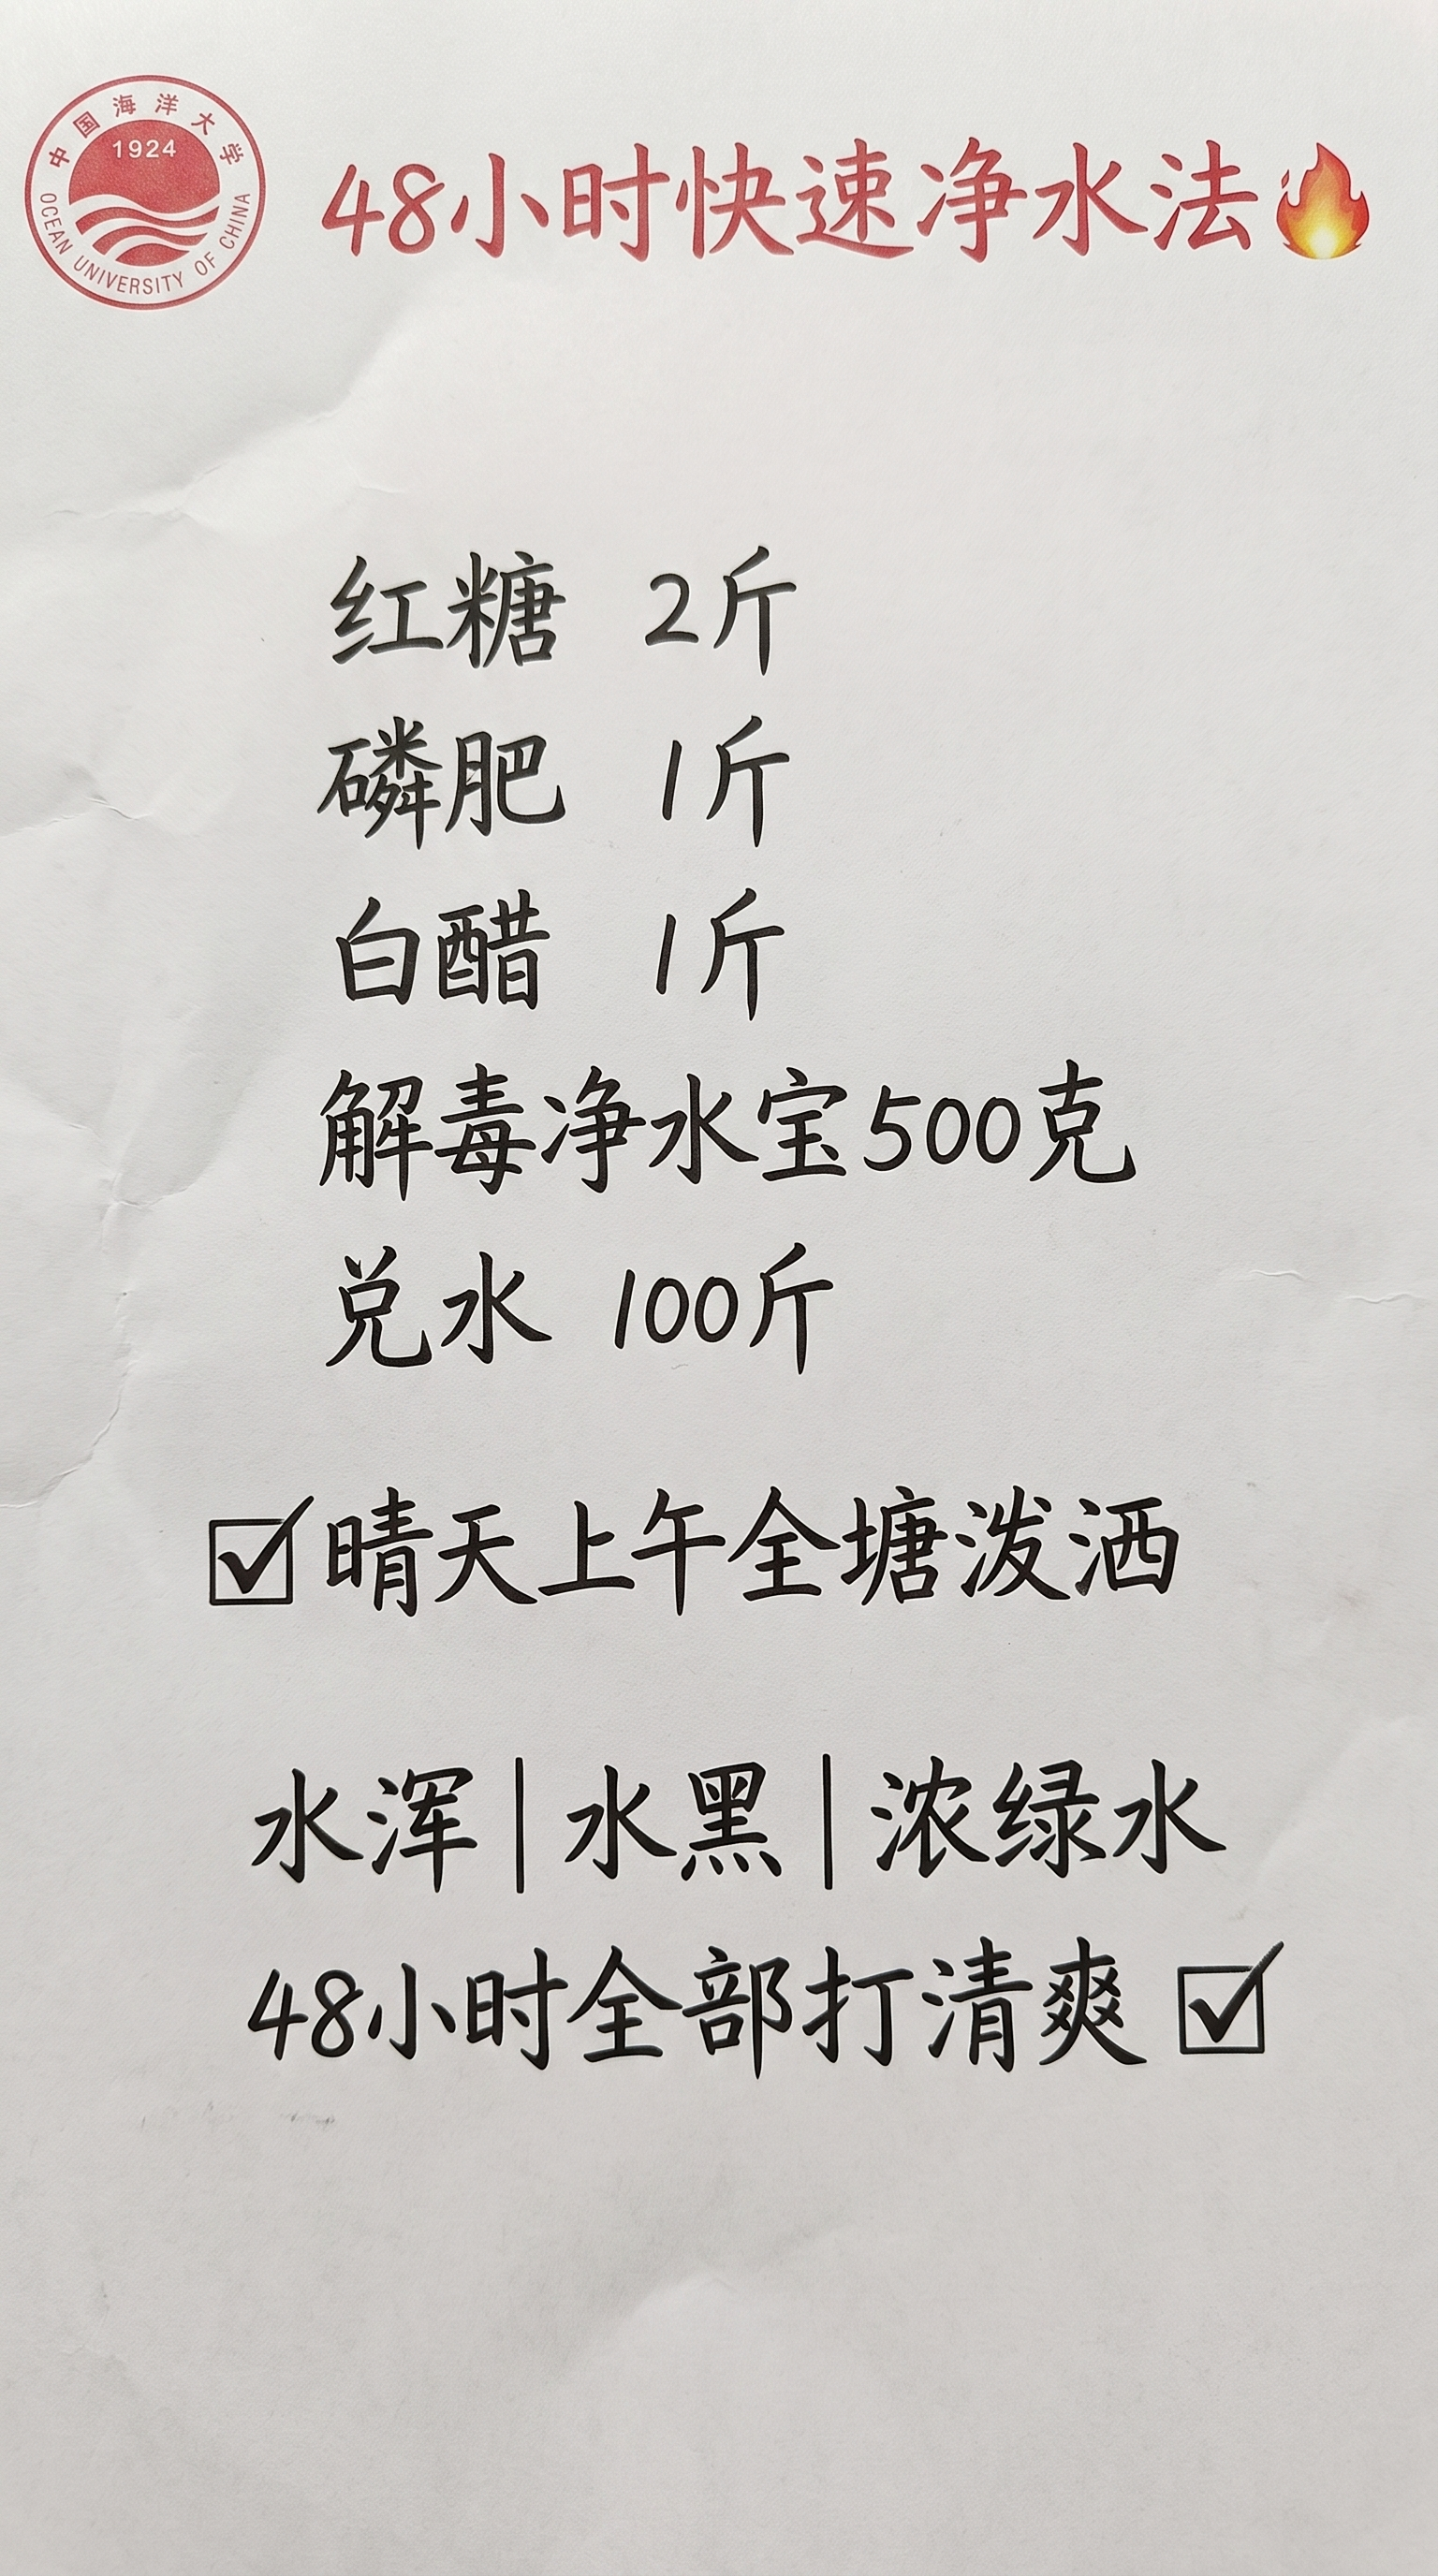 中国海洋大学
1924
OCEAN UNIVERSITY OF CHINA
48小时快速净水法🔥
红糖 2斤
磷肥 1斤
白醋 1斤
解毒净水宝500克
兑水 100斤
☑晴天上午全塘泼洒
水浑|水黑|浓绿水
48小时全部打清爽☑